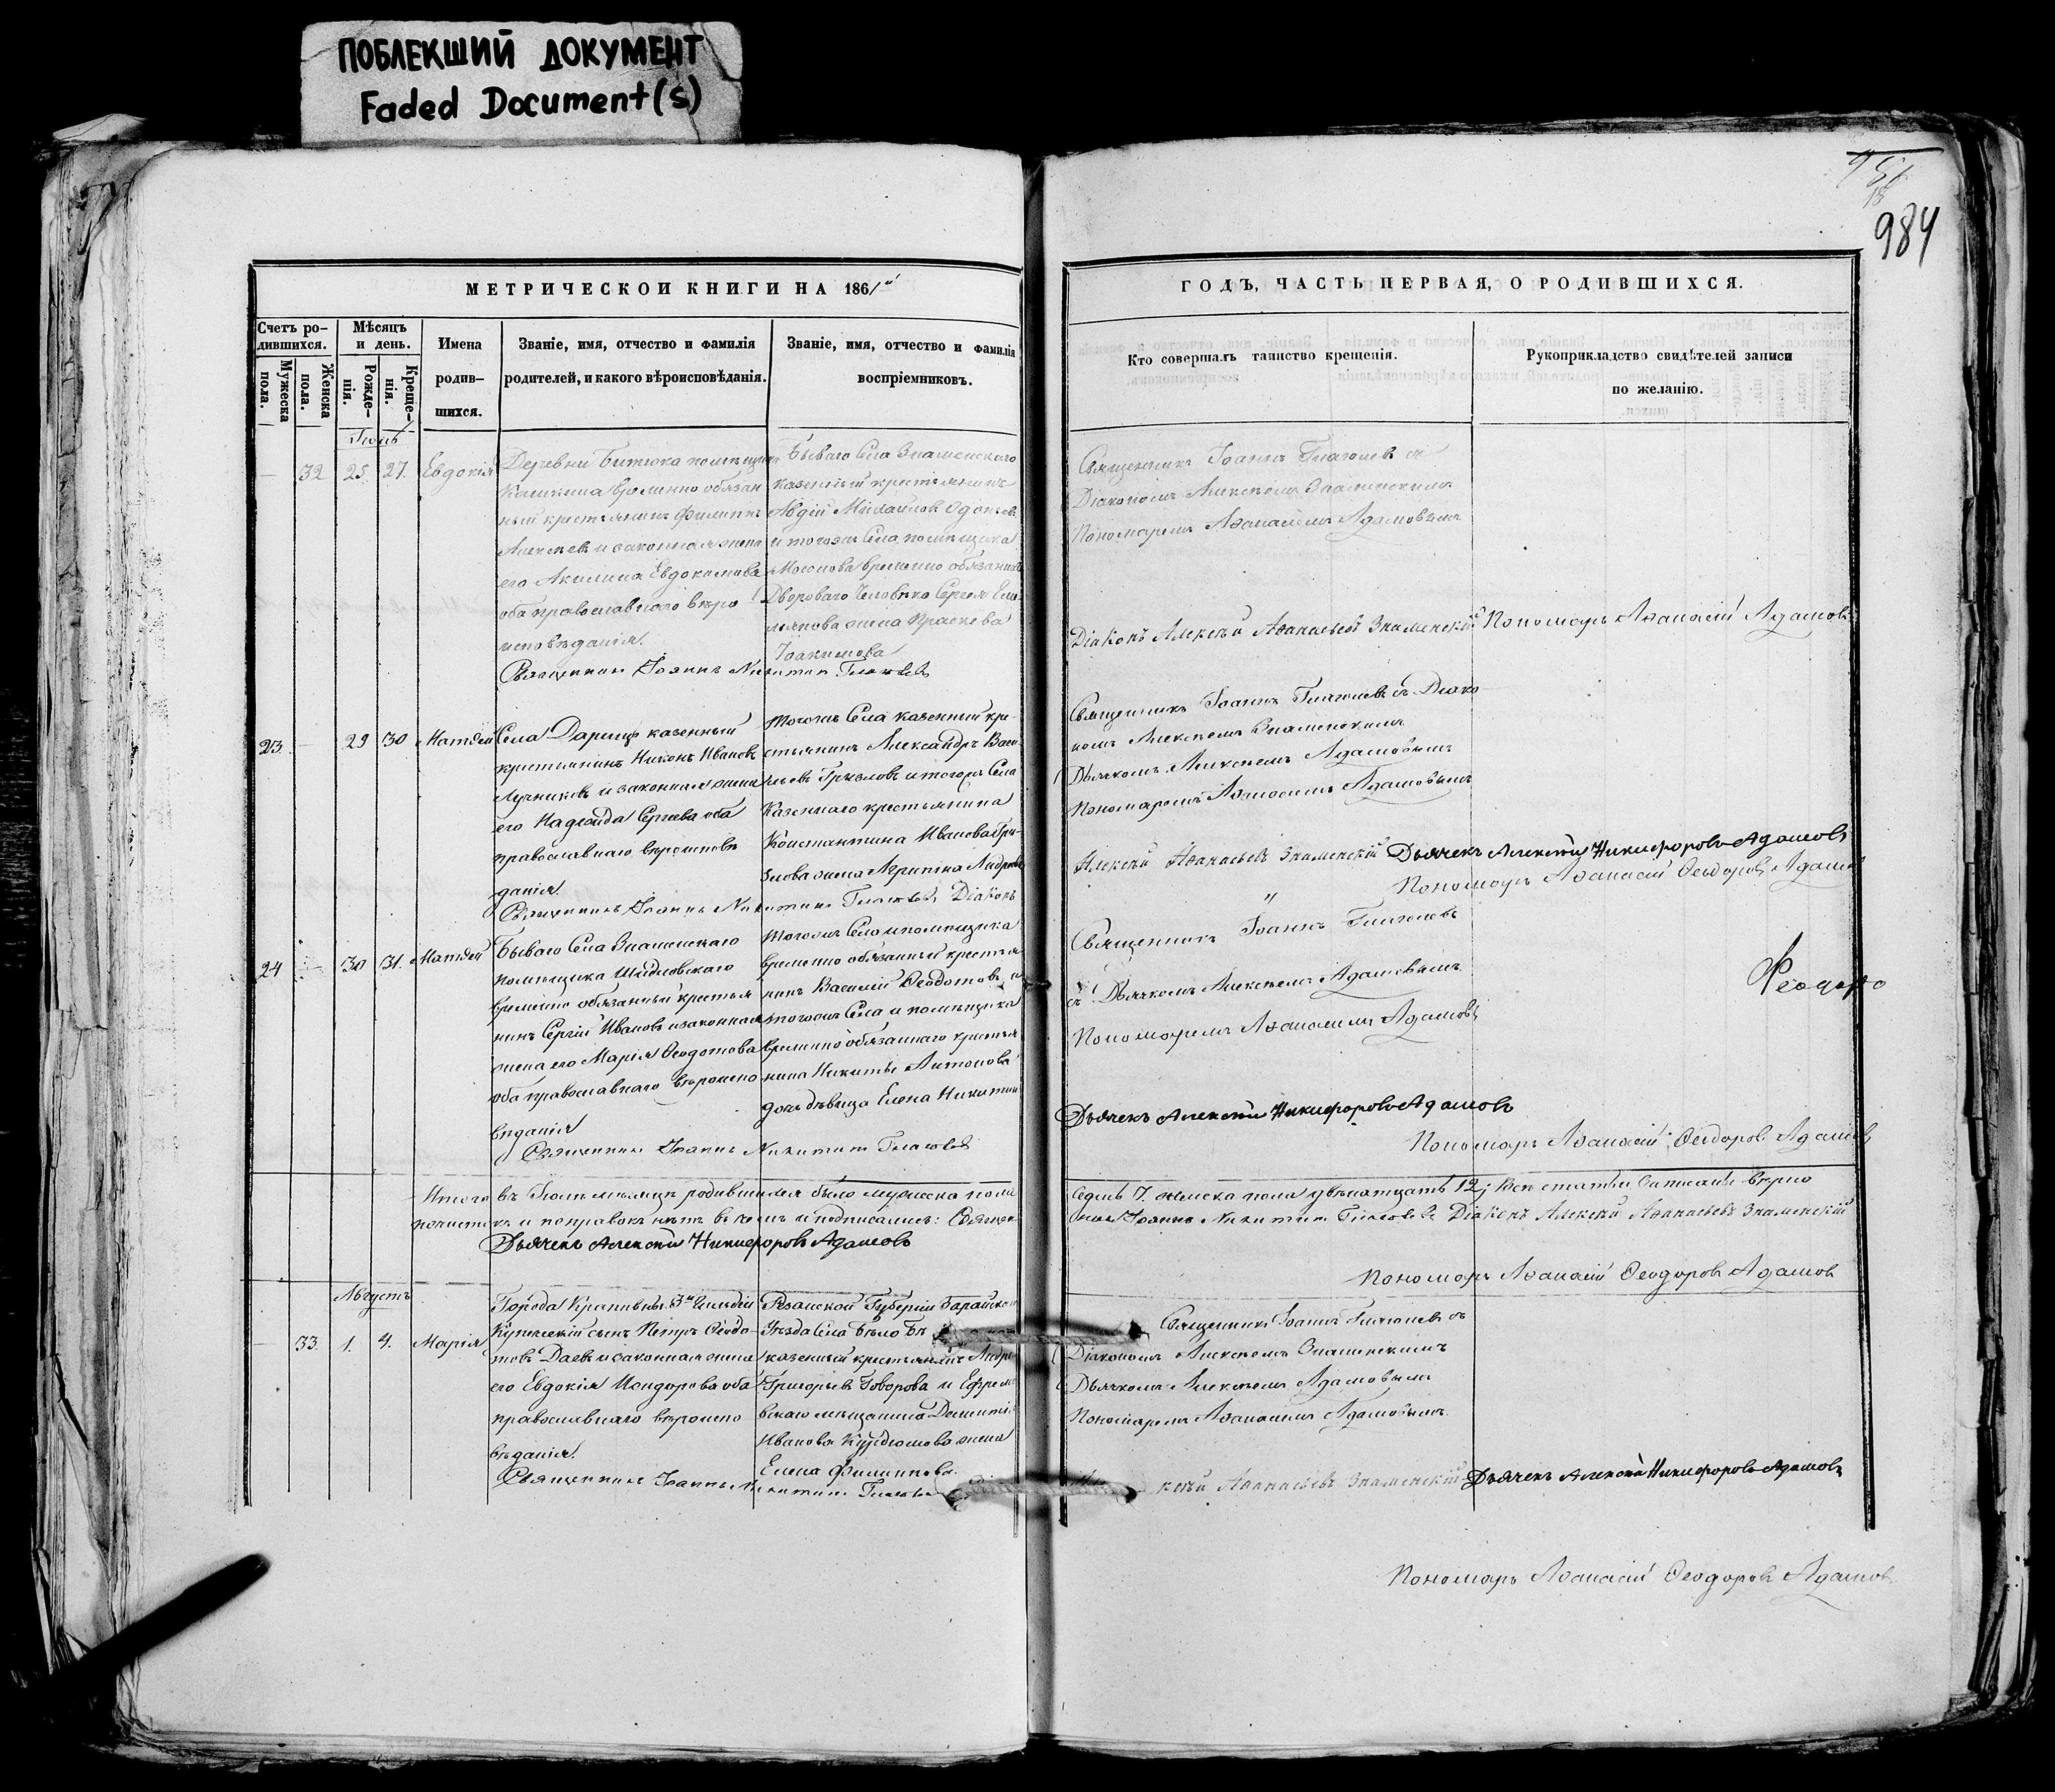 ПОБЛЕКШИЙ ДОКУМЕНТ
Faded Document(s)
984
МЕТРИЧЕСКОЙ КНИГИ НА 1861й
ГОДЪ, ЧАСТЬ ПЕРВАЯ, О РОДИВШИХСЯ.
Счетъ ро-
дившихся.
Мужеска
пола.
Женска
пола.
Мѣсяцъ
и день.
Рожде-
нія.
Креще-
нія.
Имена
родив-
шихся.
Званіе, имя, отчество и фамилія
родителей, и какого вѣроисповѣданія.
Званіе, имя, отчество и фамилія
воспріемниковъ.
Кто совершалъ таинство крещенія.
Рукоприкладство свидѣтелей записи
по желанію.
Іюль
32 25. 27. Евдокія
Деревни Битюка помѣщик
временно обязан
ный крестьянинъ Филиппъ
Алексѣевъ и законная жена
его Акилина Евдокимова
оба православнаго вѣро
исповѣданія.
Бываго Села Знаменскаго
казенный крестьянинъ
Авдій Михайловъ
и тогожъ Села помѣщика
временно обязаннаго
Двороваго Человѣка Сергея Еме
льянова жена Праскева
Іоакимова
Священникъ Іоаннъ Никитинъ Глаголевъ
Священникъ Іоаннъ Глаголевъ съ
Діакономъ Алексѣемъ Знаменскимъ
Пономаремъ Аѳанасіемъ Адамовымъ
Діаконъ Алексѣй Аѳанасьевъ Знаменскій Пономарь Аѳанасій Адамовъ
23 29 30 Матѳей
Села Дарищъ казенный
крестьянинъ Никонъ Ивановъ
Лучниковъ и законная жена
его Надежда Сергѣева оба
православнаго вѣроисповѣ
данія.
Тогожъ Села казенный кре-
стьянинъ Александръ Васи
льевъ Грызловъ и тогожъ Села
Казеннаго крестьянина
Константина Иванова Гры-
злова жена
Священникъ Іоаннъ Никитинъ Глаголевъ Діаконъ
Священникъ Іоаннъ Глаголевъ съ Діако
номъ Алексѣемъ Знаменскимъ
Дьячкомъ Алексѣемъ Адамовымъ
Пономаремъ Аѳанасіемъ Адамовымъ
Алексѣй Аѳанасьевъ Знаменскій Дьячекъ Алексѣй Никифоровъ Адамовъ
Пономарь Аѳанасій Ѳеодоровъ Адамовъ
24 30 31. Матѳей
Бываго Села Знаменскаго
помѣщика Шидловскаго
временно обязанный крестья
нинъ Сергій Ивановъ и законная
жена его Марія Ѳеодотова
оба православнаго вѣроиспо
вѣданія
Тогожъ Села и помѣщика
временно обязанный крестья
нинъ Василій Ѳеодотовъ и
тогожъ Села и помѣщика
временно обязаннаго крестья
нина Никиты Антонова
дочь дѣвица Елена Никитина
Священникъ Іоаннъ Никитинъ Глаголевъ
Священникъ Іоаннъ Глаголевъ
съ Дьячкомъ Алексѣемъ Адамовымъ
Пономаремъ Аѳанасіемъ Адамовымъ
Дьячекъ Алексѣй Никифоровъ Адамовъ
Пономарь Аѳанасій Ѳеодоровъ Адамовъ
Итого въ Іюлѣ мѣсяцѣ родившихся было мужеска пола Седмь 7. женска пола двѣнатцать 12; Всѣ статьи писаны вѣрно
почистокъ и поправокъ нѣтъ въ чемъ и подписались: Священникъ Іоаннъ Никитинъ Глаголевъ Діаконъ Алексѣй Аѳанасьевъ Знаменскій
Дьячекъ Алексѣй Никифоровъ Адамовъ
Пономарь Аѳанасій Ѳеодоровъ Адамов
Августъ
33. 1. 4. Марія
Города Крапивны 3й Гильдіи
Купеческій сынъ Петръ Ѳеодо-
товъ Даевъ и законная жена
его Евдокія Исидорова оба
православнаго вѣроиспо
вѣданія.
Рязанской Губерніи
Уѣзда Села
казенный крестьянинъ
Григорьевъ Говорова и Ефрем
Иванова Курдюмова жена
Елена Филиппова.
Священникъ Іоаннъ Никитинъ Глаголевъ
Священникъ Іоаннъ Глаголевъ съ
Діакономъ Алексѣемъ Знаменскимъ
Дьячкомъ Алексѣемъ Адамовымъ
Пономаремъ Аѳанасіемъ Адамовымъ
ксѣй Аѳанасьевъ Знаменскій Дьячекъ Алексѣй Никифоровъ Адамовъ
Пономарь Аѳанасій Ѳеодоровъ Адамов